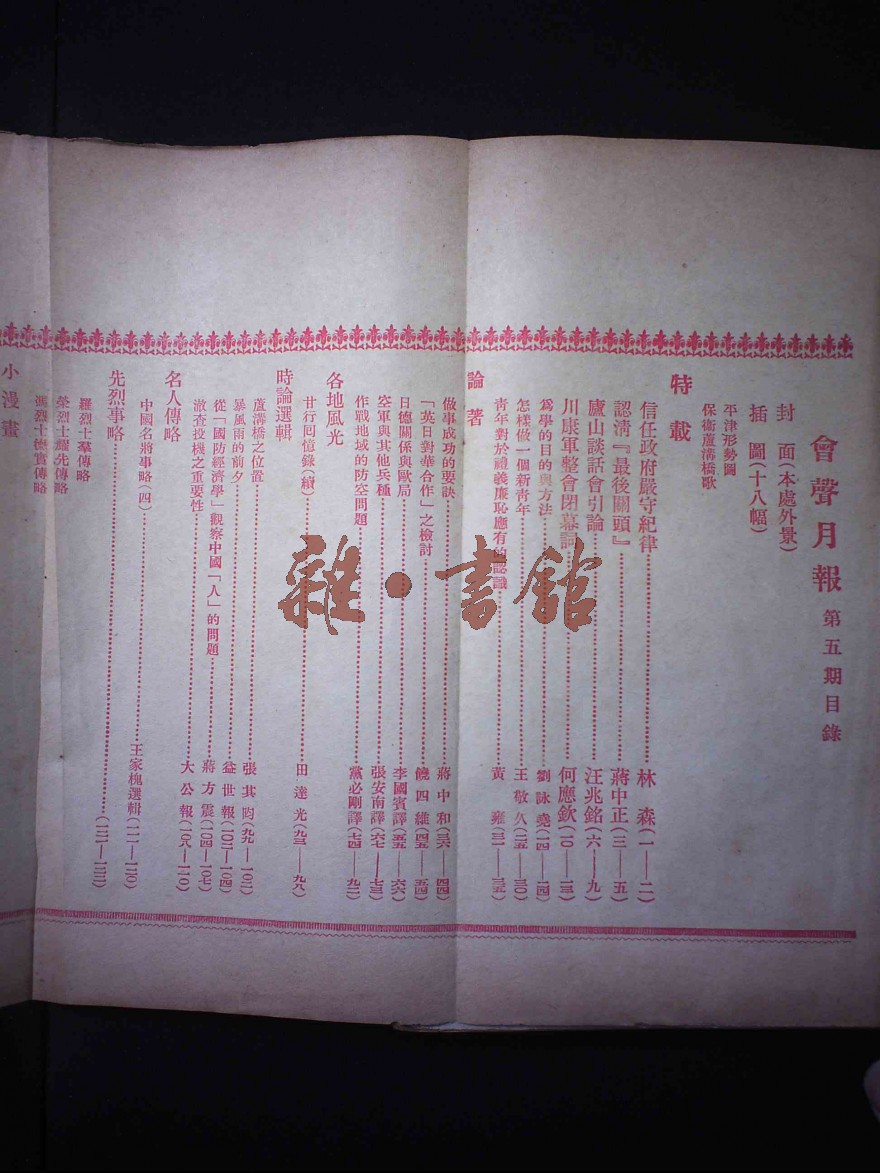 會聲月報 第五期目錄
封面(本處外景)
插圖(十八幅)
平津形勢圖
保衛蘆溝橋歌
特載
信任政府嚴守紀律……林森(一——二)
認清『最後關頭』……蔣中正(三——五)
廬山談話會引論……汪兆銘(六——九)
川康軍整會閉幕詞……何應欽(一〇——一三)
爲學的目的與方法……劉詠堯(一四——二四)
怎樣做一個新青年……王敬久(二五——三〇)
青年對於禮義廉恥應有的認識……黃雍(三一——三五)
論著
做事成功的要訣……蔣中和(三六——四四)
「英日對華合作」之檢討……饒四維(四五——五四)
日德關係與歐局……李國賓譯(五五——六六)
空軍與其他兵種……張安南譯(六七——七三)
作戰地域的防空問題……黨必剛譯(七四——九二)
各地風光
甘行回憶錄(續)……田達光(九三——九八)
時論選輯
蘆溝橋之位置……張其昀(九九——一〇二)
暴風雨的前夕……益世報(一〇二——一〇四)
從「國防經濟學」觀察中國「人」的問題……蔣方震(一〇四——一〇七)
澈查投機之重要性……大公報(一〇八——一一〇)
名人傳略
中國名將事略(四)……王家槐選輯(一一一——一二〇)
先烈事略……(一二一——一二三)
羅烈士羣傳略
榮烈士耀先傳略
馮烈士德實傳略
小漫畫
雜·書館